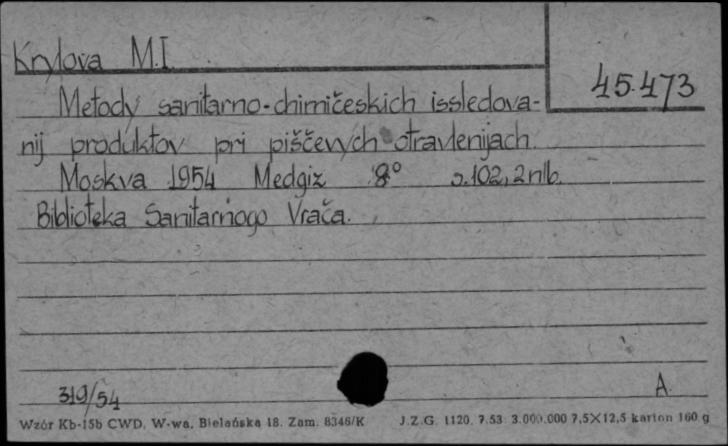 Krylova M.I.
45.473
Metody sanitarno-chimičeskich issledova-
nij produktov pri piščevych otravlenijach.
Moskva 1954 Medgiz 8° s.102, 2 nlb.
Biblioteka Sanitarnogo Vrača.
319/54
A.
Wzór Kb-15b CWD, W-wa, Bielańska 18. Zam. 8346/K J.Z.G. 1120. 7.53. 3.000.000 7,5×12,5 karton 160 g